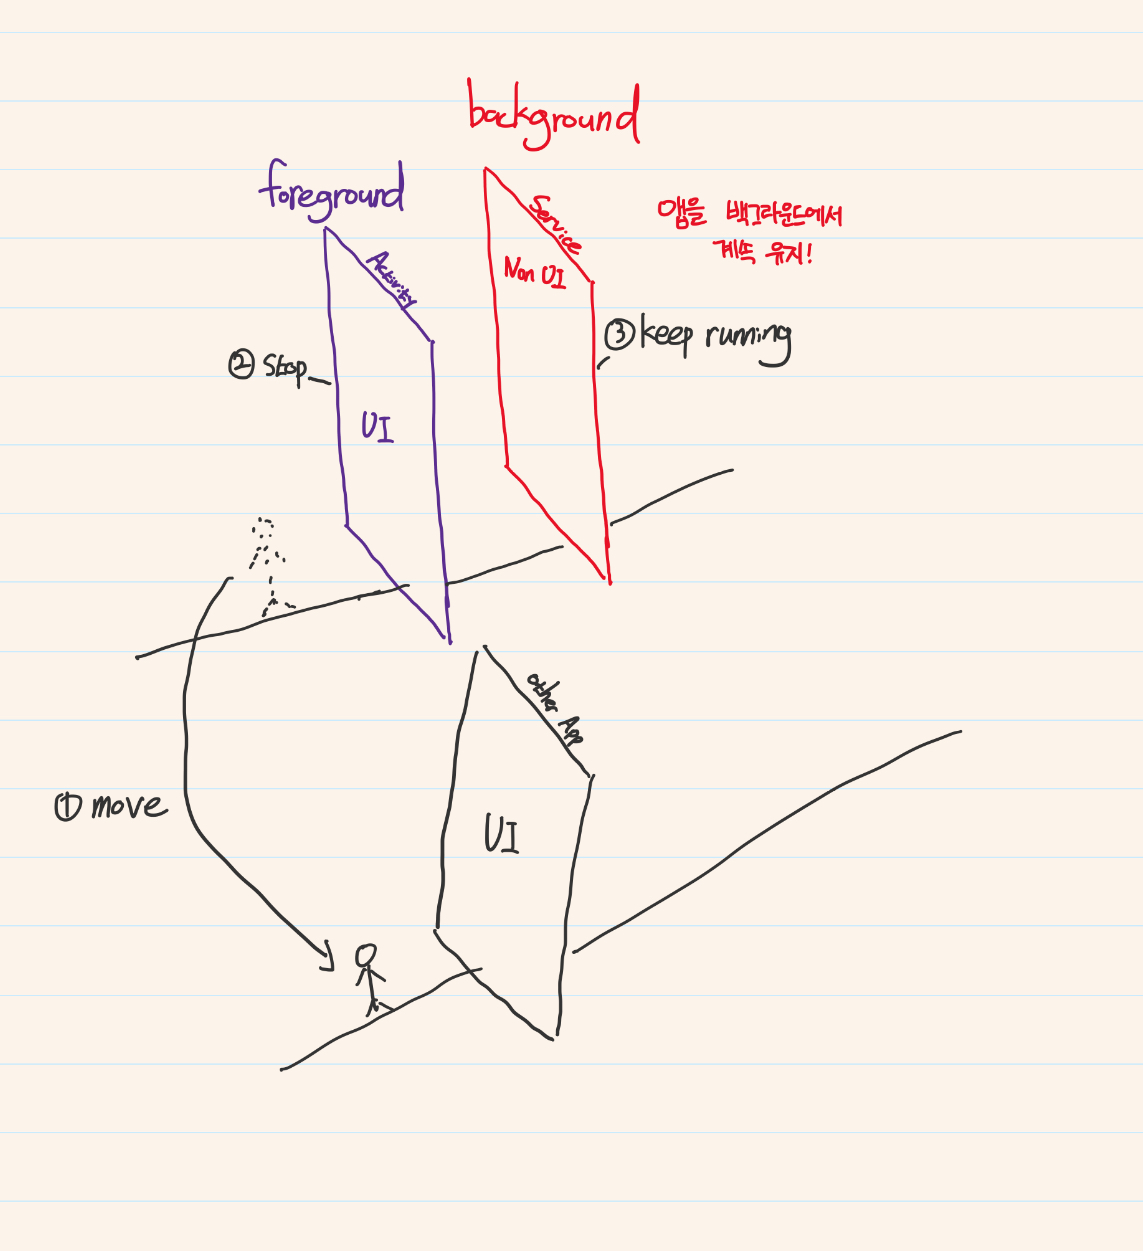 background
foreground
Service
앱을 백그라운드에서
계속 유지!
Activity
Non UI
③ keep running
② Stop
UI
other App
① move
UI